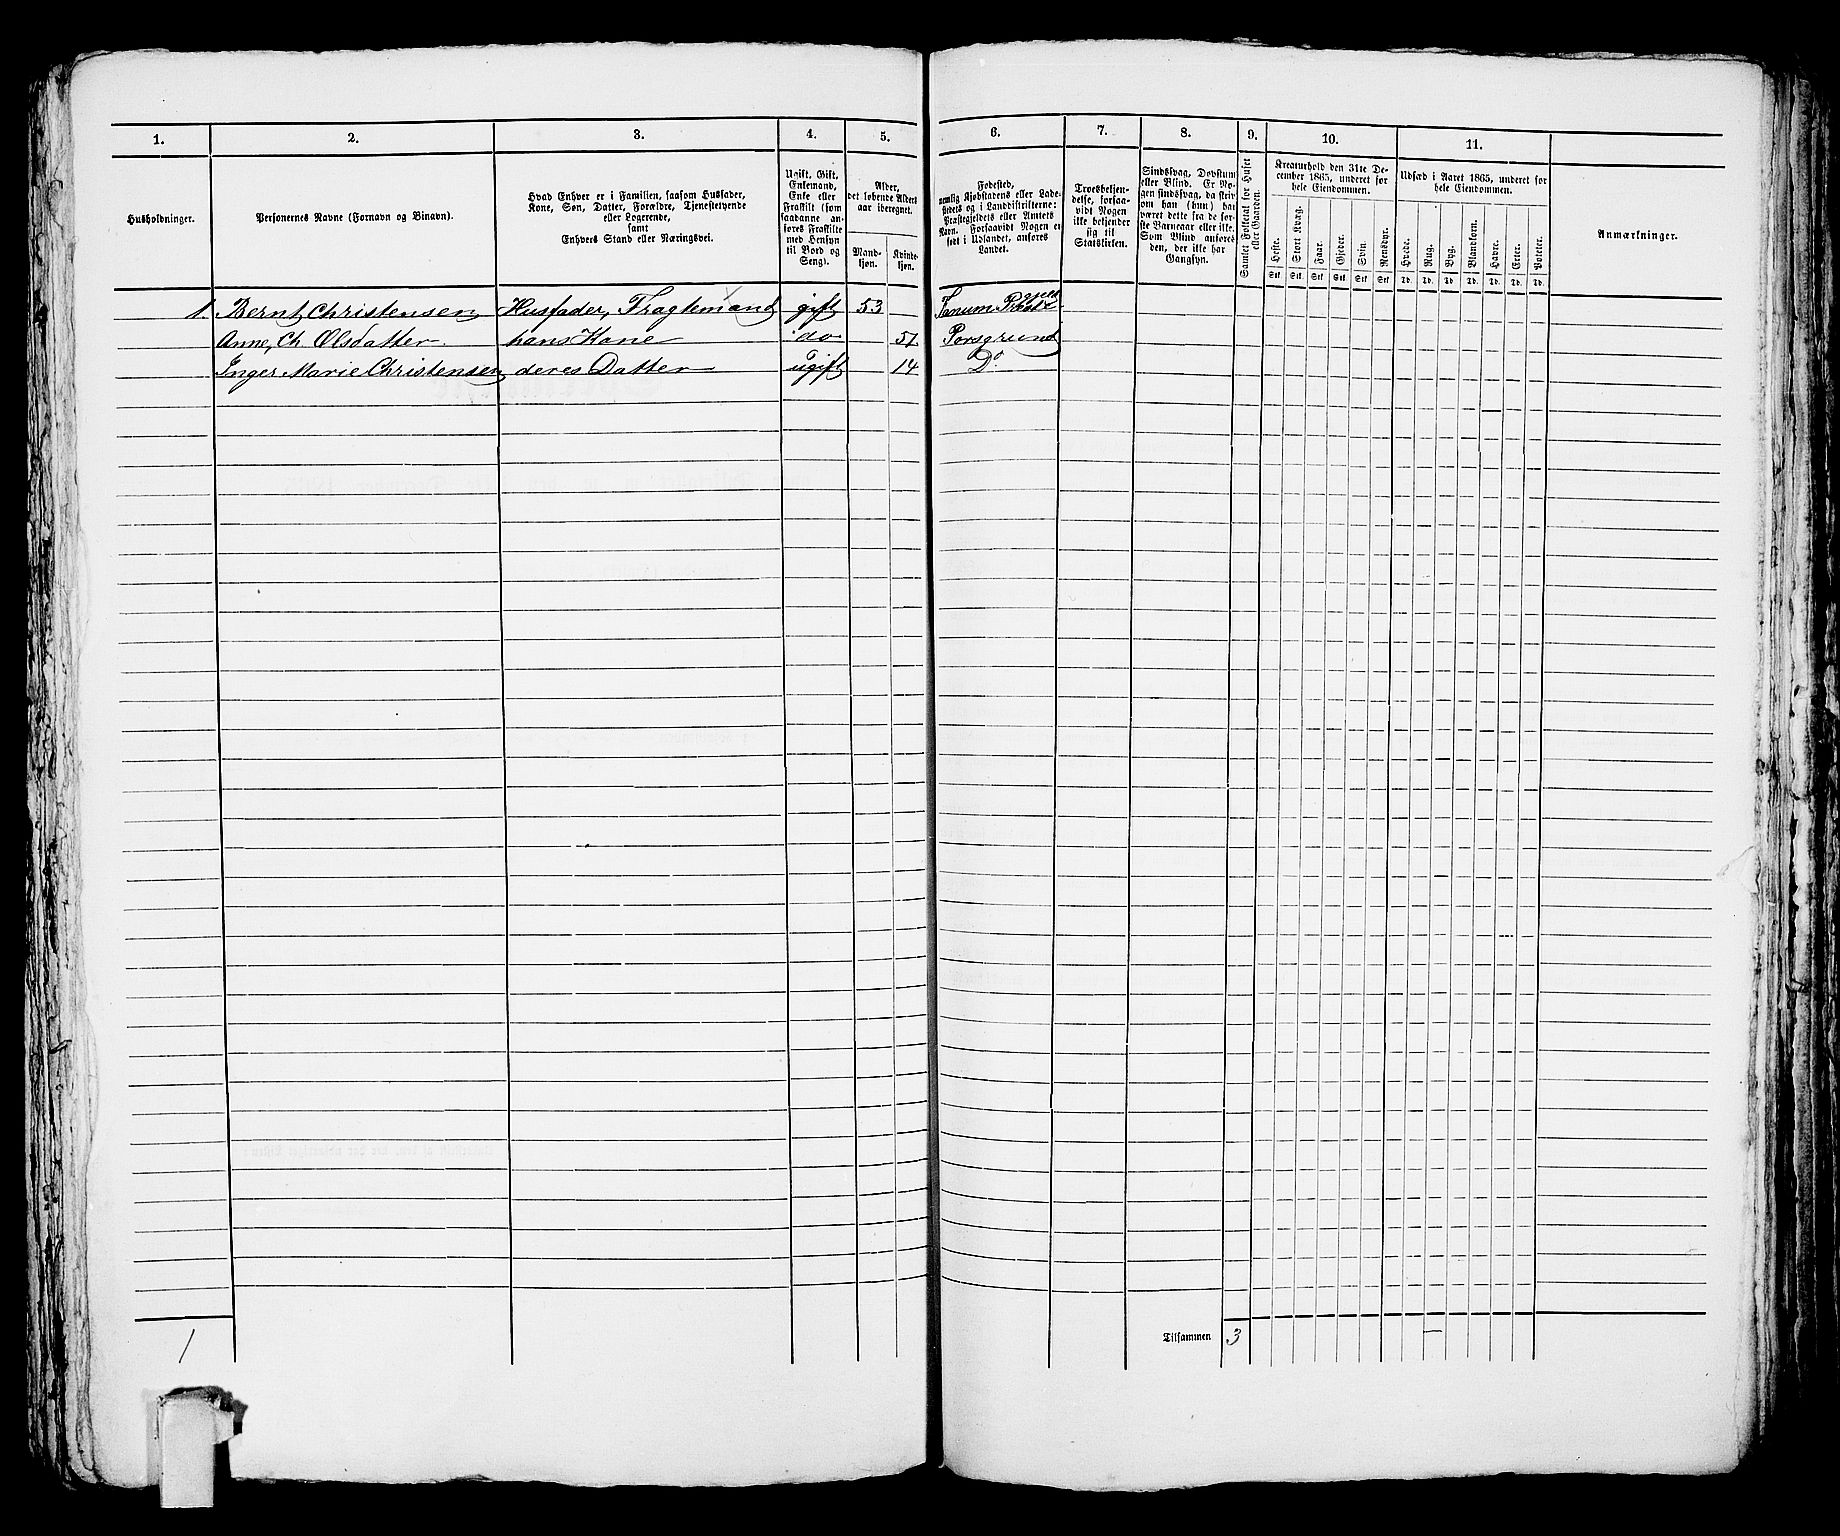 1.
2.
3.
4.
5.
6.
7.
8.
9.
10.
11.
Husholdninger.
Personernes Navne (Fornavn og Binavn).
Hvad Enhver er i Familien, saasom Husfader,
Kone, Søn, Datter, Forældre, Tjenestetyende
eller Logerende,
samt
Enhvers Stand eller Næringsvei.
Ugift, Gift,
Enkemand,
Enke eller
Fraskilt (som
saadanne an-
føres Fraskilte
med Hensyn
til Bord og
Seng).
Alder,
det løbende Alders-
aar iberegnet.
Mand-
kjøn.
Kvinde-
kjøn.
Fødested,
nemlig Kjøbstadens eller Lade-
stedets og i Landdistrikterne:
Præstegjeldets eller Amtets
Navn. Forsaavidt Nogen er
født i Udlandet, anføres
Landet.
Troesbekjen-
delse, forsaa-
vidt Nogen
ikke bekjender
sig til
Statskirken.
Sindssvag, Døvstum
eller Blind. Er No-
gen sindssvag, da skriv
om han (hun) har
været dette fra de før-
ste Barneaar eller ikke.
Som Blind anføres
den, der ikke har
Gangsyn.
Samlet Folketal for Huset
eller Gaarden.
Kreaturhold den 31te De-
cember 1865, underet for
hele Eiendommen.
Heste.
Stort Kvæg.
Faar.
Gjeder.
Svin.
Rensdyr.
Stk. Stk. Stk. Stk. Stk. Stk.
Udsæd i Aaret 1865, underet for
hele Eiendommen.
Hvede.
Rug.
Byg.
Blandkorn.
Havre.
Erter.
Poteter.
Td. Td. Td. Td. Td. Td. Td.
Anmærkninger.
1. Bernt Christensen Husfader, Fragtemand gift 53 Tanum
Anne, Ch. Olsdatter hans Kone do 51 Porsgrund
Inger Marie Christensen deres Datter ugift 14 Do
1
Tilsammen 3 —